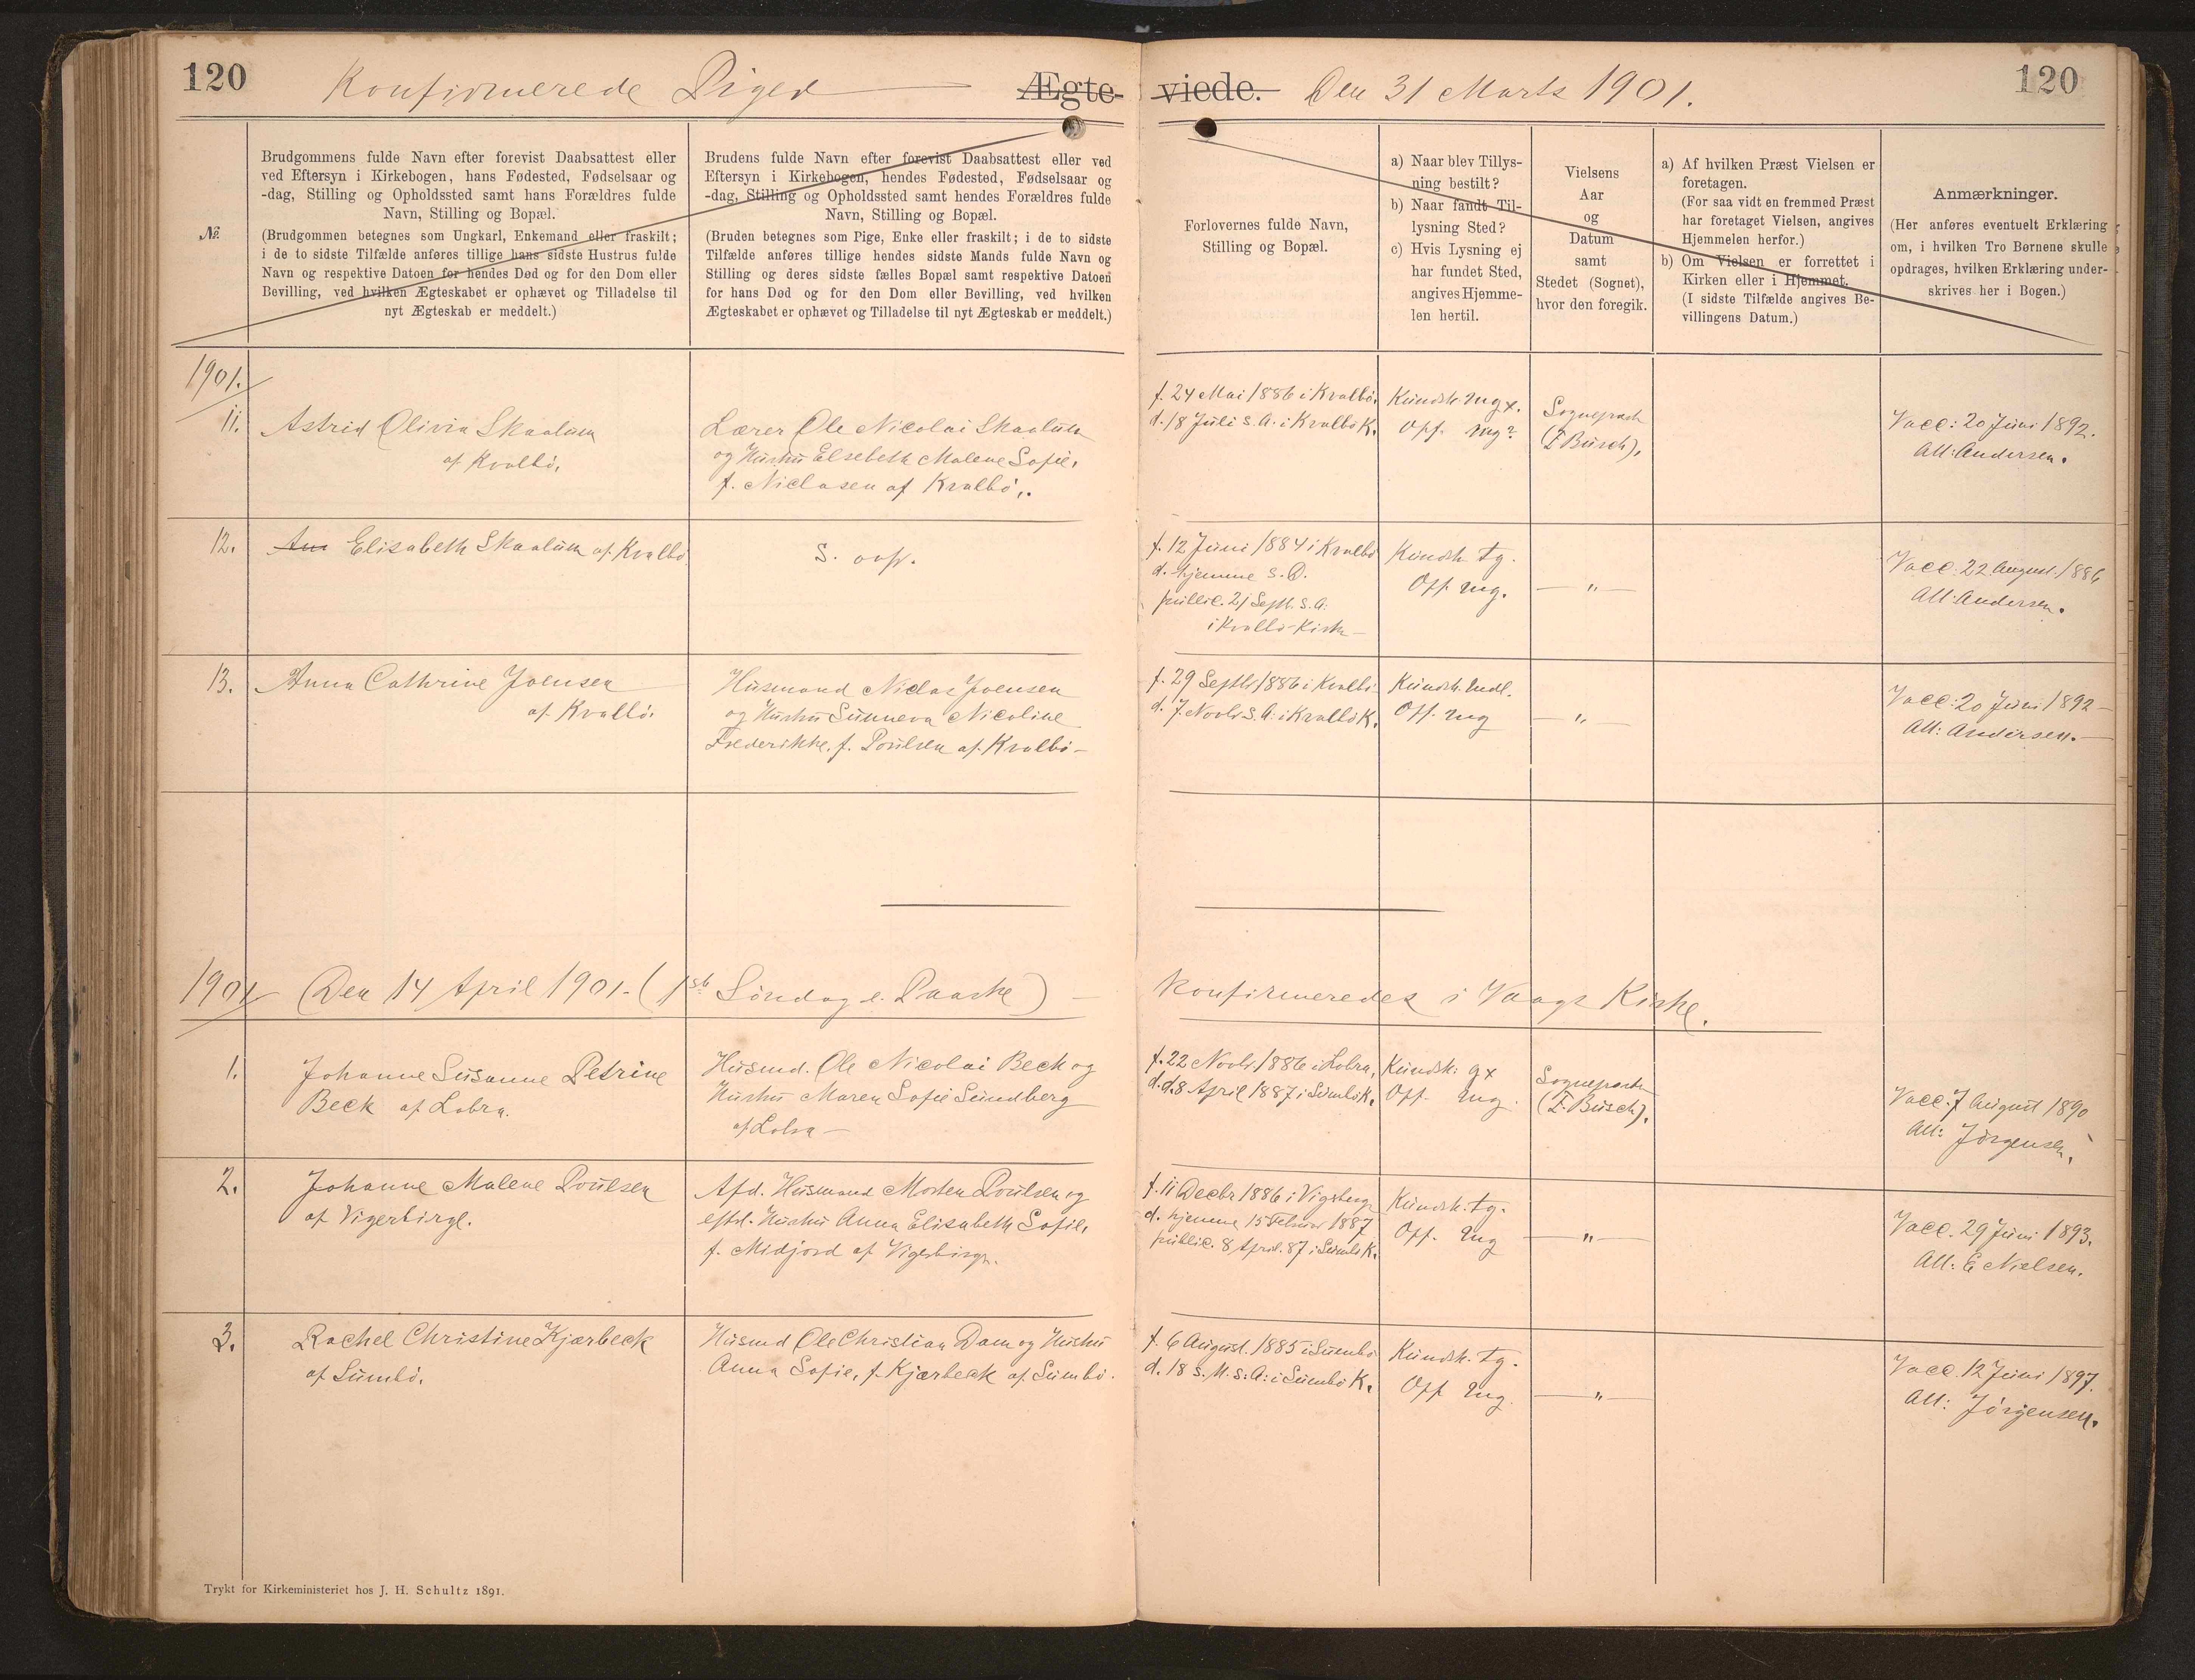 120
Konfirmerede Piger
Ægte-
viede.
Den 31 Marts 1901.
120
№
Brudgommens fulde Navn efter forevist Daabsattest eller
ved Eftersyn i Kirkebogen, hans Fødested, Fødselsaar og
-dag, Stilling og Opholdssted samt hans Forældres fulde
Navn, Stilling og Bopæl.
(Brudgommen betegnes som Ungkarl, Enkemand eller fraskilt;
i de to sidste Tilfælde anføres tillige hans sidste Hustrus fulde
Navn og respektive Datoen for hendes Død og for den Dom eller
Bevilling, ved hvilken Ægteskabet er ophævet og Tilladelse til
nyt Ægteskab er meddelt.)
Brudens fulde Navn efter forevist Daabsattest eller ved
Eftersyn i Kirkebogen, hendes Fødested, Fødselsaar og
-dag, Stilling og Opholdssted samt hendes Forældres fulde
Navn, Stilling og Bopæl.
(Bruden betegnes som Pige, Enke eller fraskilt; i de to sidste
Tilfælde anføres tillige hendes sidste Mands fulde Navn og
Stilling og deres sidste fælles Bopæl samt respektive Datoen
for hans Død og for den Dom eller Bevilling, ved hvilken
Ægteskabet er ophævet og Tilladelse til nyt Ægteskab er meddelt.)
Forlovernes fulde Navn,
Stilling og Bopæl.
a) Naar blev Tillys-
ning bestilt?
b) Naar fandt Til-
lysning Sted?
c) Hvis Lysning ej
har fundet Sted,
angives Hjemme-
len hertil.
Vielsens
Aar
og
Datum
samt
Stedet (Sognet),
hvor den foregik.
a) Af hvilken Præst Vielsen er
foretagen.
(For saa vidt en fremmed Præst
har foretaget Vielsen, angives
Hjemmelen herfor.)
b) Om Vielsen er forrettet i
Kirken eller i Hjemmet.
(I sidste Tilfælde angives Be-
villingens Datum.)
Anmærkninger.
(Her anføres eventuelt Erklæring
om, i hvilken Tro Børnene skulle
opdrages, hvilken Erklæring under-
skrives her i Bogen.)
1901.
11.
Astrid Olivia Skaalum
af Kvalbø.
Lærer Ole Nicolai Skaalum
og Hustru Elsebeth Malene Sofie,
f. Niclasen af Kvalbø.
f. 24 Mai 1886 i Kvalbø.
d. 18 Juli s. A. i Kvalbø K.
Kundsk. mgx.
Opf. mg?
Sognepræst
(F. Busch).
Vacc: 20 Juni 1892.
Att: Andersen.
12.
Elisabeth Skaalum af Kvalbø
S. ovf.
f. 12 Juni 1884 i Kvalbø
d. hjemme s. D.
public. 21 Septb. s. A.
i Kvalbø Kirke
Kundsk. tg.
Opf. mg.
— " —
Vacc: 22 August 1886
Att: Andersen.
13.
Anna Cathrine Joensen
af Kvalbø.
Husmand Niclas Joensen
og Hustru Sunneva Nicoline
Frederikke, f. Poulsen af Kvalbø —
f. 29 Septbr 1886 i Kvalbø
d. 7. Novbr s. A. i Kvalbø K.
Kundsk. mdl.
Opf. mg
— " —
Vacc: 20 Juni 1892 —
Att: Andersen. —
1901
(Den 14 April 1901. (1ste Søndag e. Paaske)
Konfirmeredes i Vaags Kirke.
1.
Johanne Susanne Petrine
Beck af Lobra.
Husmd. Ole Nicolai Beck og
Hustru Maren Sofie Sundberg
af Lobra —
f. 22 Novbr. 1886 i Lobra,
d. d. 8 April 1887 i Sumbø K.
Kundsk: gx
Opf. mg.
Sognepræsten
(F. Busch).
Vacc: 7 August 1890
Att: Jørgensen.
2.
Johanne Malene Poulsen
af Vigerbirge.
Afd. Husmand Morten Poulsen og
eftl. Hustru Anna Elisabeth Sofie,
f. Midjord af Vigerbirge.
f. 11 Decbr 1886 i Vigerberg
d. hjemme 15 Februar 1887
public. 8 April. 87 i Sumbø K.
Kundsk: tg.
Opf. mg
— " —
Vacc. 29 Juni 1893.
Att: E Nielsen.
3.
Rachel Christine Kjærbeck
af Sumbø.
Husmd Ole Christian Dam og Hustru
Anna Sofie, f. Kjærbeck af Sumbø.
f. 6 August. 1885 i Sumbø
d. 18 s. M. s: A: i Sumbø K.
Kundsk. tg.
Opf mg.
— " —
Vacc. 12 Juni 1897.
Att: Jørgensen.
Trykt for Kirkeministeriet hos J. H. Schultz 1891.